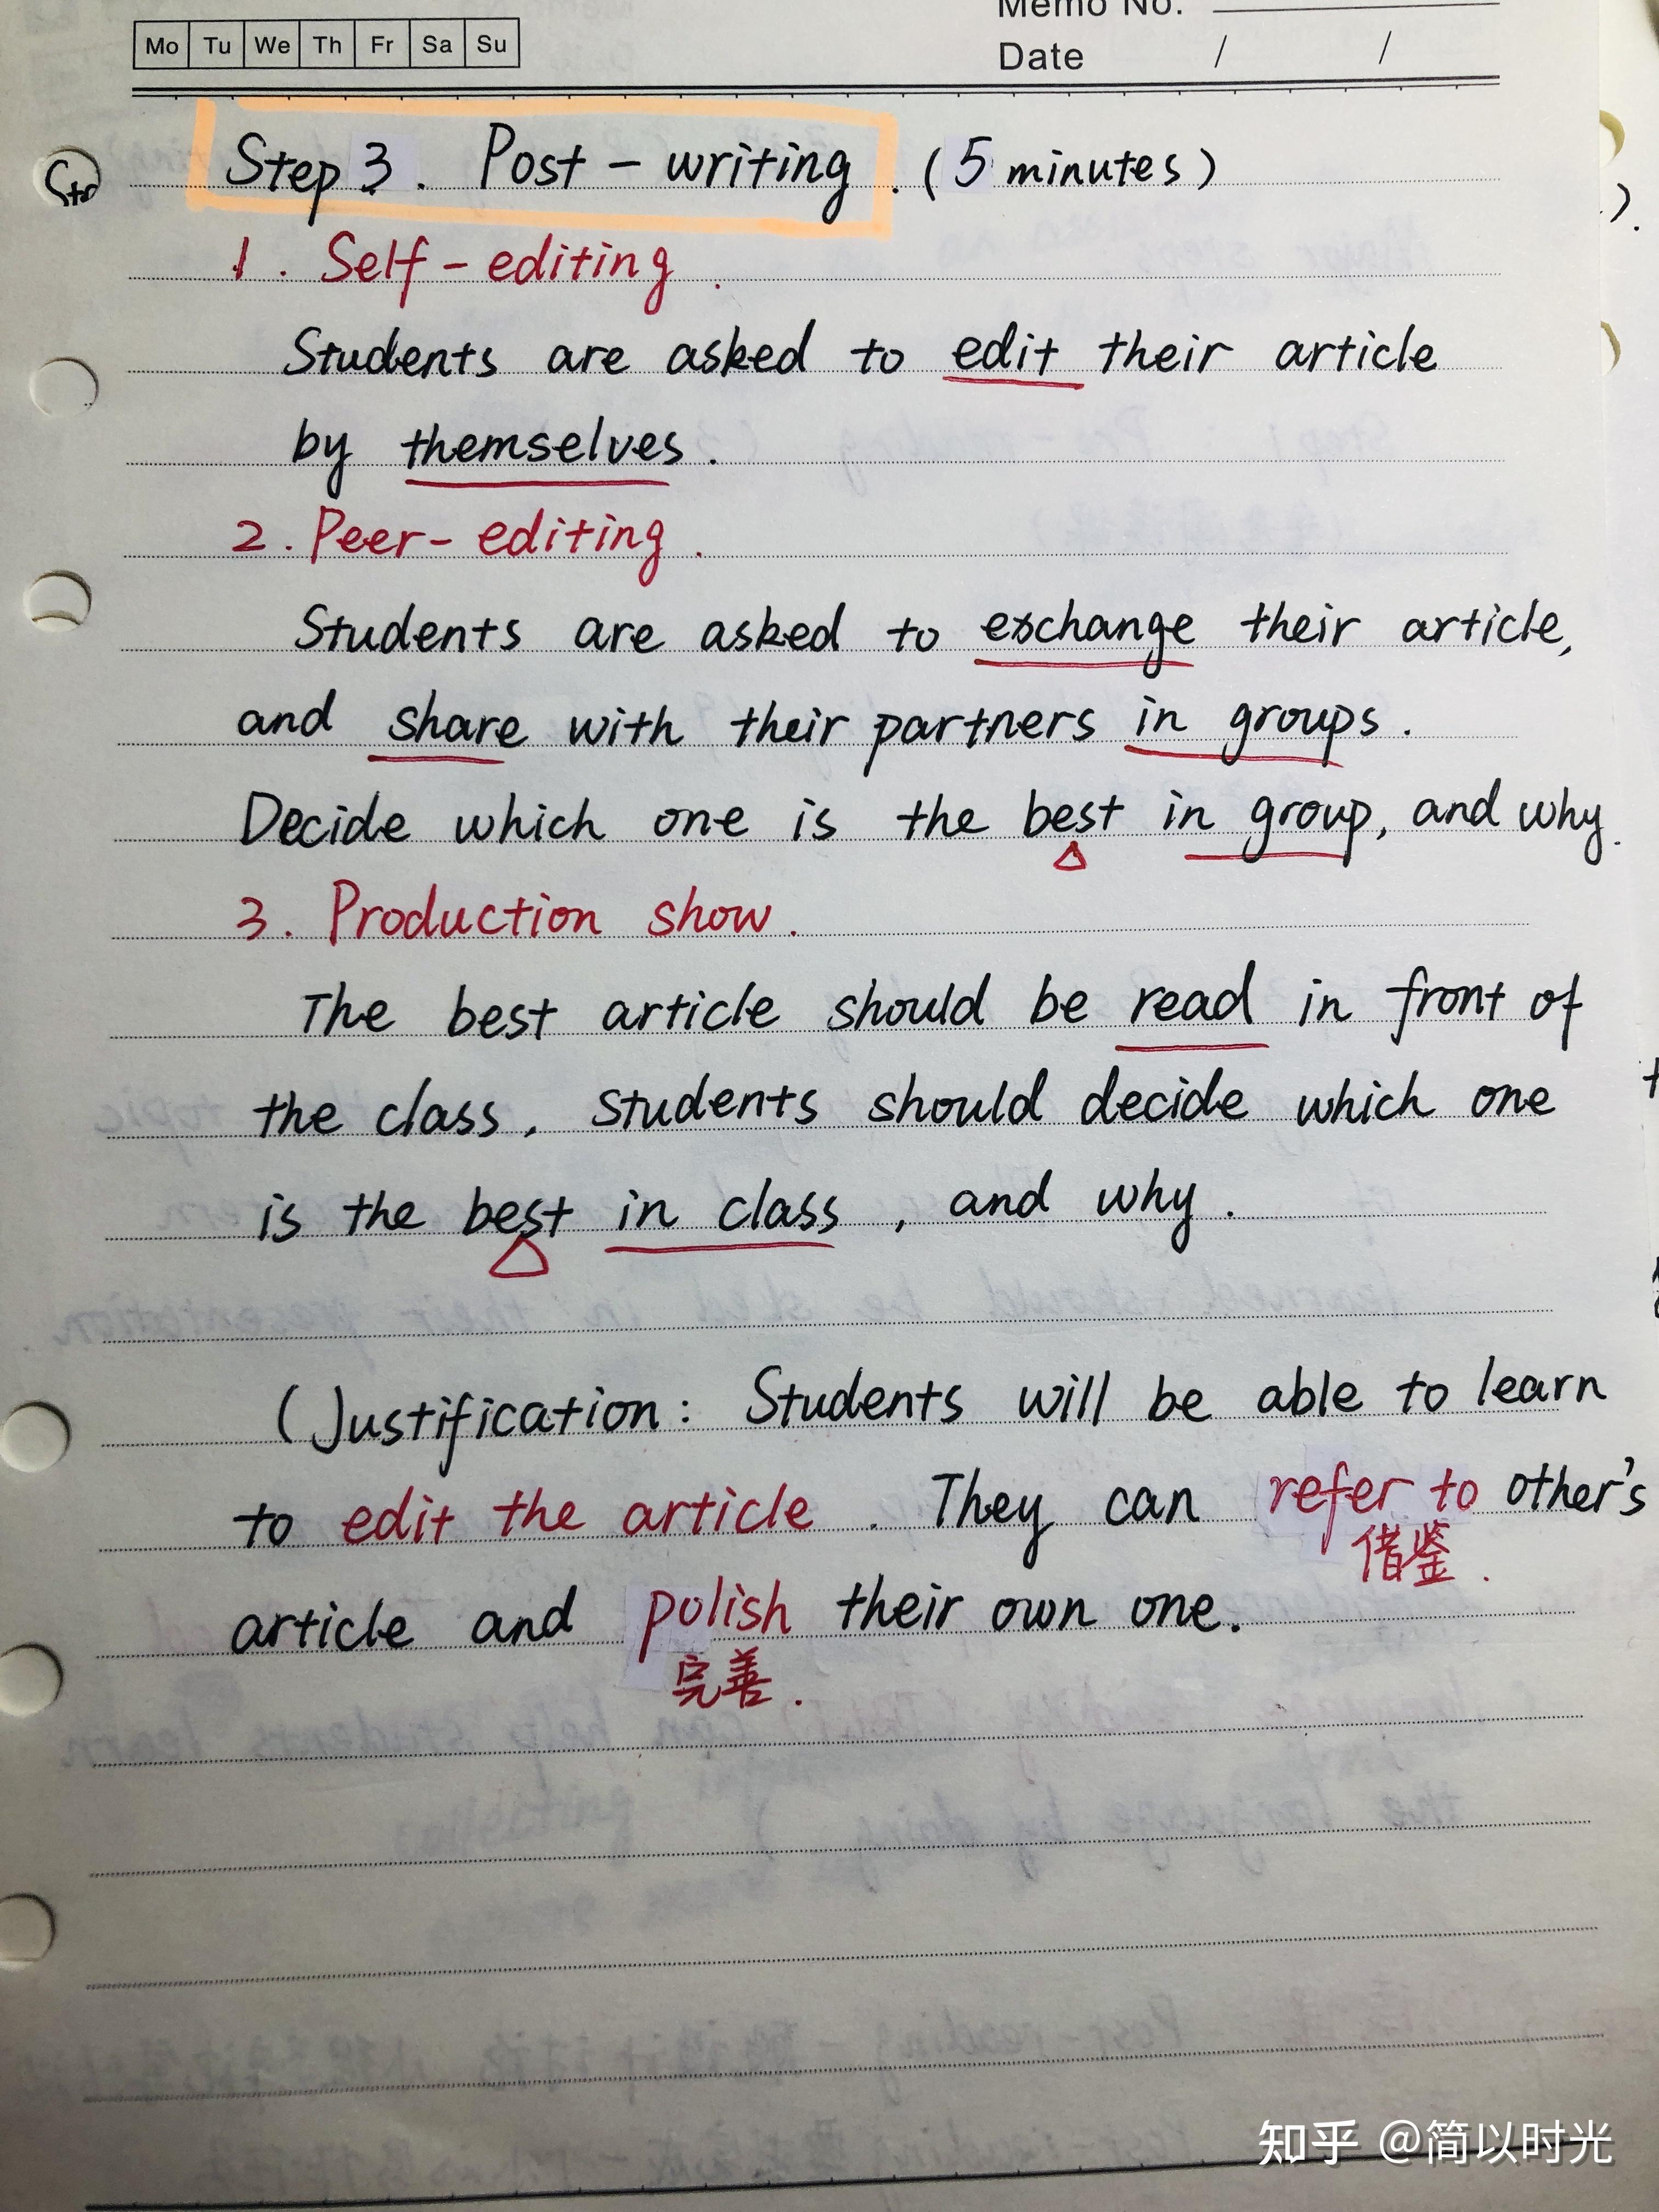 Memo No.
Mo Tu We Th Fr Sa Su
Date / /
Step 3. Post-writing. (5 minutes)
1. Self-editing.
Students are asked to edit their article
by themselves.
2. Peer-editing.
Students are asked to exchange their article,
and share with their partners in groups.
Decide which one is the best in group, and why.
3. Production show.
The best article should be read in front of
the class. Students should decide which one
is the best in class, and why.
(Justification: Students will be able to learn
to edit the article. They can refer to other's
借鉴.
article and polish their own one.
完善.
知乎 @简以时光